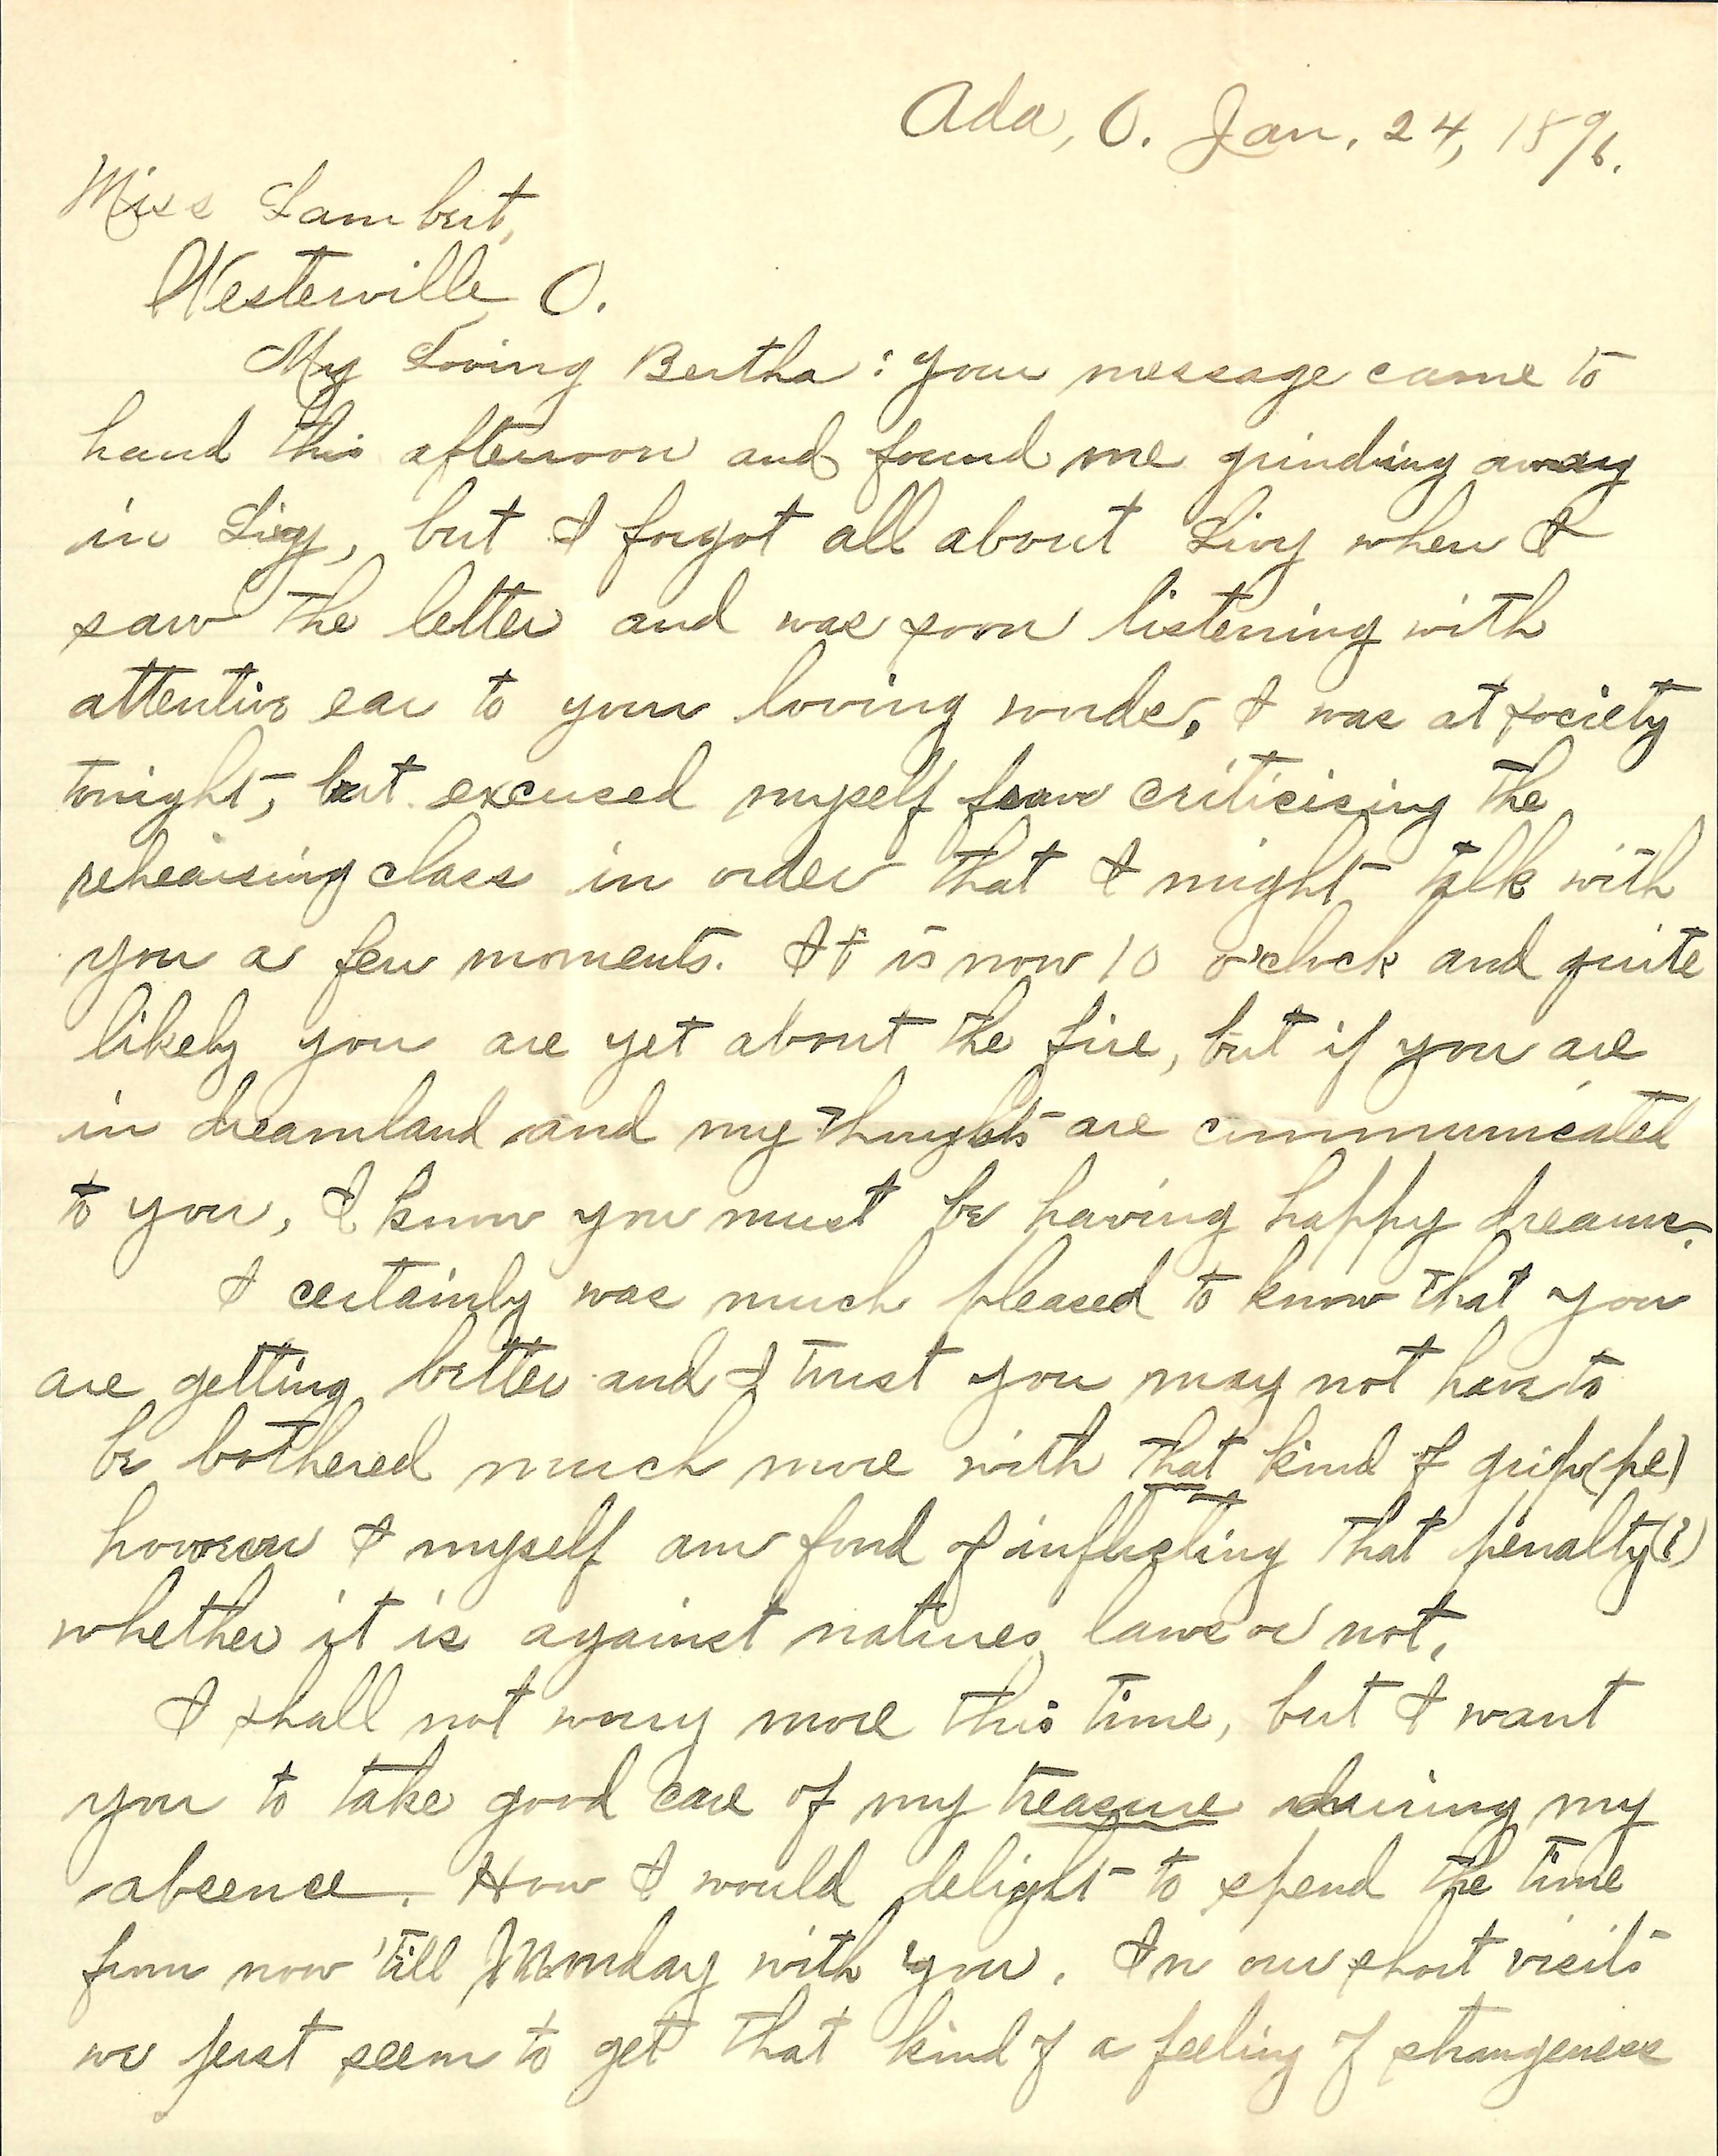 Ada, O. Jan. 24, 1896.
Miss Lambert,
Westerville O.
My Loving Bertha: Your message came to
hand this afternoon and found me grinding away
in Livy, but I forgot all about Livy when I
saw the letter and was soon listening with
attentive ear to your loving words. I was at society
tonight, but excused myself from criticising the
rehearsing class in order that I might talk with
you a few moments. It is now 10 o'clock and quite
likely you are yet about the fire, but if you are
in dreamland and my thoughts are communicated
to you, I know you must be having happy dreams.
I certainly was much pleased to know that you
are getting better and I trust you may not have to
be bothered much more with that kind of grip(pe)
however I myself am fond of inflicting that penalty(?)
whether it is against natures laws or not.
I shall not worry more this time, but I want
you to take good care of my treasure during my
absence. How I would delight to spend the time
from now 'till Monday with you. In our short visits
we just seem to get that kind of a feeling of strangeness